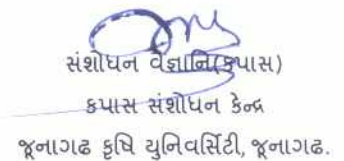 સંશોધન વૈજ્ઞાનિ(કપાસ)
કપાસ સંશોધન કેન્દ્ર
જૂનાગઢ કૃષિ યુનિવર્સિટી, જૂનાગઢ.